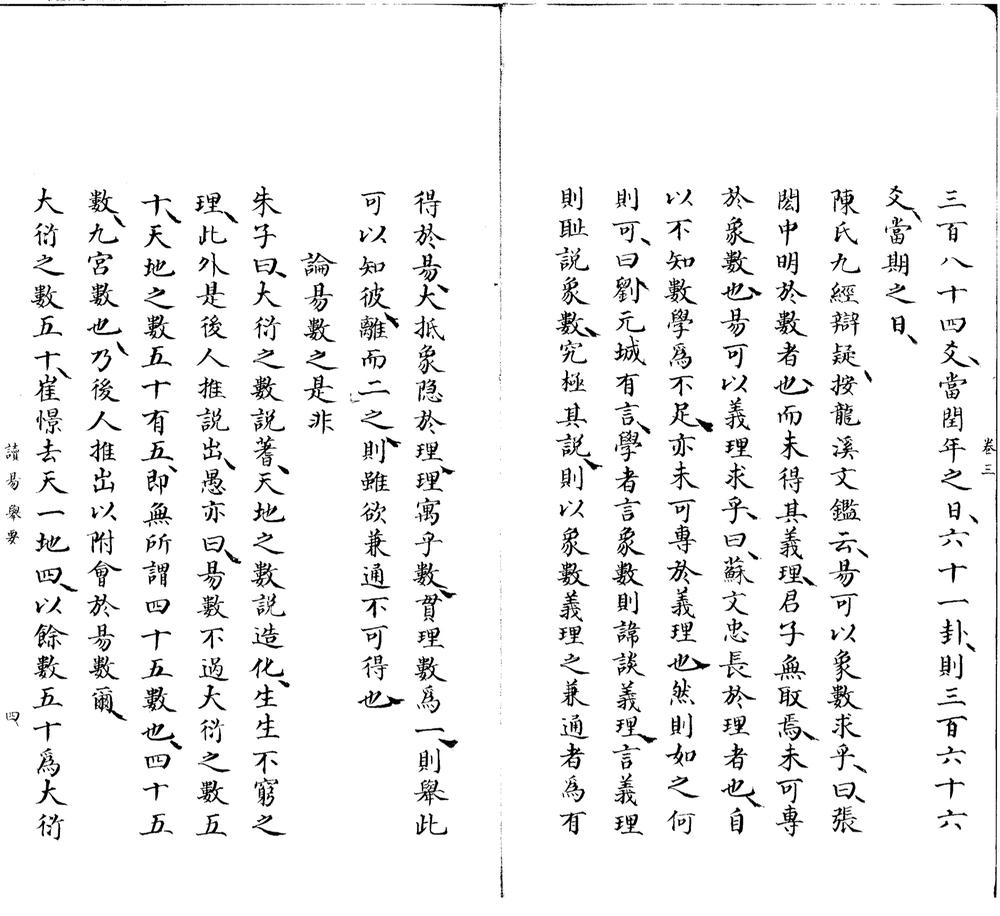 三百八十四爻、當閏年之日、六十一卦、則三百六十六
爻、當期之日、
陳氏九經辯疑、按龍溪文鑑云、易可以象數求乎、曰、張
閎中明於數者也、而未得其義理、君子無取焉、未可專
於象數也、易可以義理求乎、曰、蘇文忠長於理者也、自
以不知數學爲不足、亦未可專於義理也、然則如之何
則可、曰、劉元城有言、學者言象數則諱談義理、言義理
則恥説象數、究極其説、則以象數義理之兼通者爲有
卷三
得於易、大抵象隐於理、理寓乎數、貫理數爲一、則舉此
可以知彼、離而二之、則雖欲兼通不可得也、
論易數之是非
朱子曰、大衍之數説蓍、天地之數説造化、生生不窮之
理、此外是後人推説出、愚亦曰、易數不過大衍之數五
十、天地之數五十有五、即無所謂四十五數也、四十五
數、九宮數也、乃後人推出以附會於易數爾、
大衍之數五十、崔憬去天一地四、以餘數五十爲大衍
讀易舉要
四